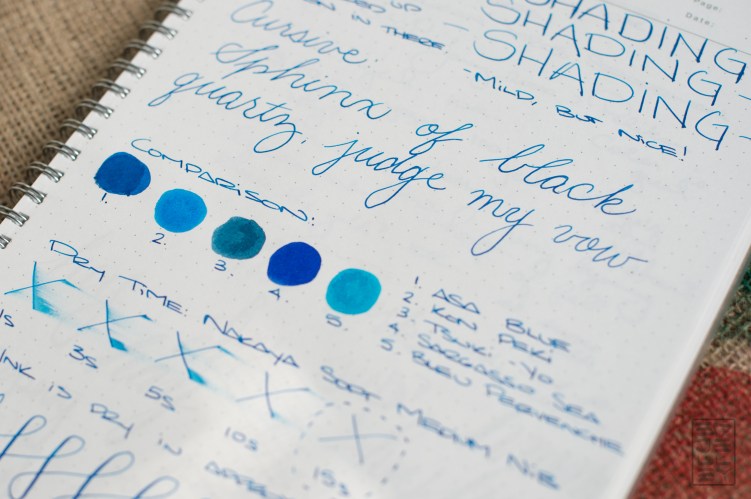 Page:
Date:
SHADING
SHADING -
- SHADING -
- MILD, BUT NICE!
UP
IN THERE
Cursive
Sphinx of black
quartz, judge my vow
COMPARISON:
1. 2. 3. 4. 5.
1. ASA BLUE
2. KEN PEKI
3. TSUKI-YO
4. SARGASSO SEA
5. BLEU PERVENCHE
DRY TIME: NAKAYA SOFT MEDIUM NIB
1s 3s 5s 10s 15s
INK IS DRY IN